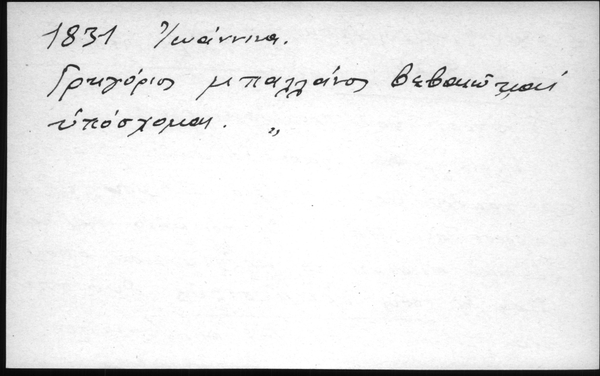 1831 Ἰωάννινα.
Γρηγόριος μπαλλάνος βεβαιῶ καὶ
ὑπόσχομαι. „